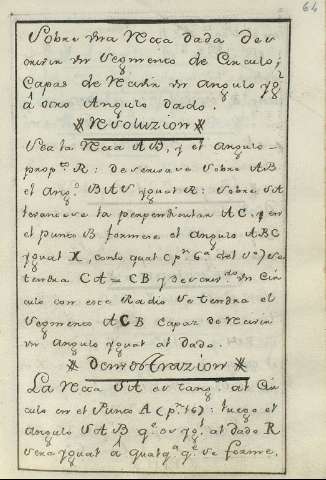 64
Sobre una Recta dada des
crivir un Segmento de Circulo,
Capas de recivir un Angulo yg.l
â otro Angulo dado.
Resoluzion
Sea la Recta AB, y el Angulo
prop.to R: descrivase sobre AB
el Ang.o BAS ygual R: Sobre SA
levantese la perpendicular AC, y en
el punto B formese el Angulo ABC
ygual X, conlo qual (p.n 6.a del 1.o) se
tendra CA = CB y descriv.do un Cir
culo con este Radio se tendra el
Segmento ACB capaz de recivir
un Angulo ygual al dado.
Demostrazion
La Recta SA es tang.te al Cir
culo en el Punto A (p.n 16): luego el
Angulo SAB q.e es yg.l al dado R
sera ygual â qualq.a q.e se forme,